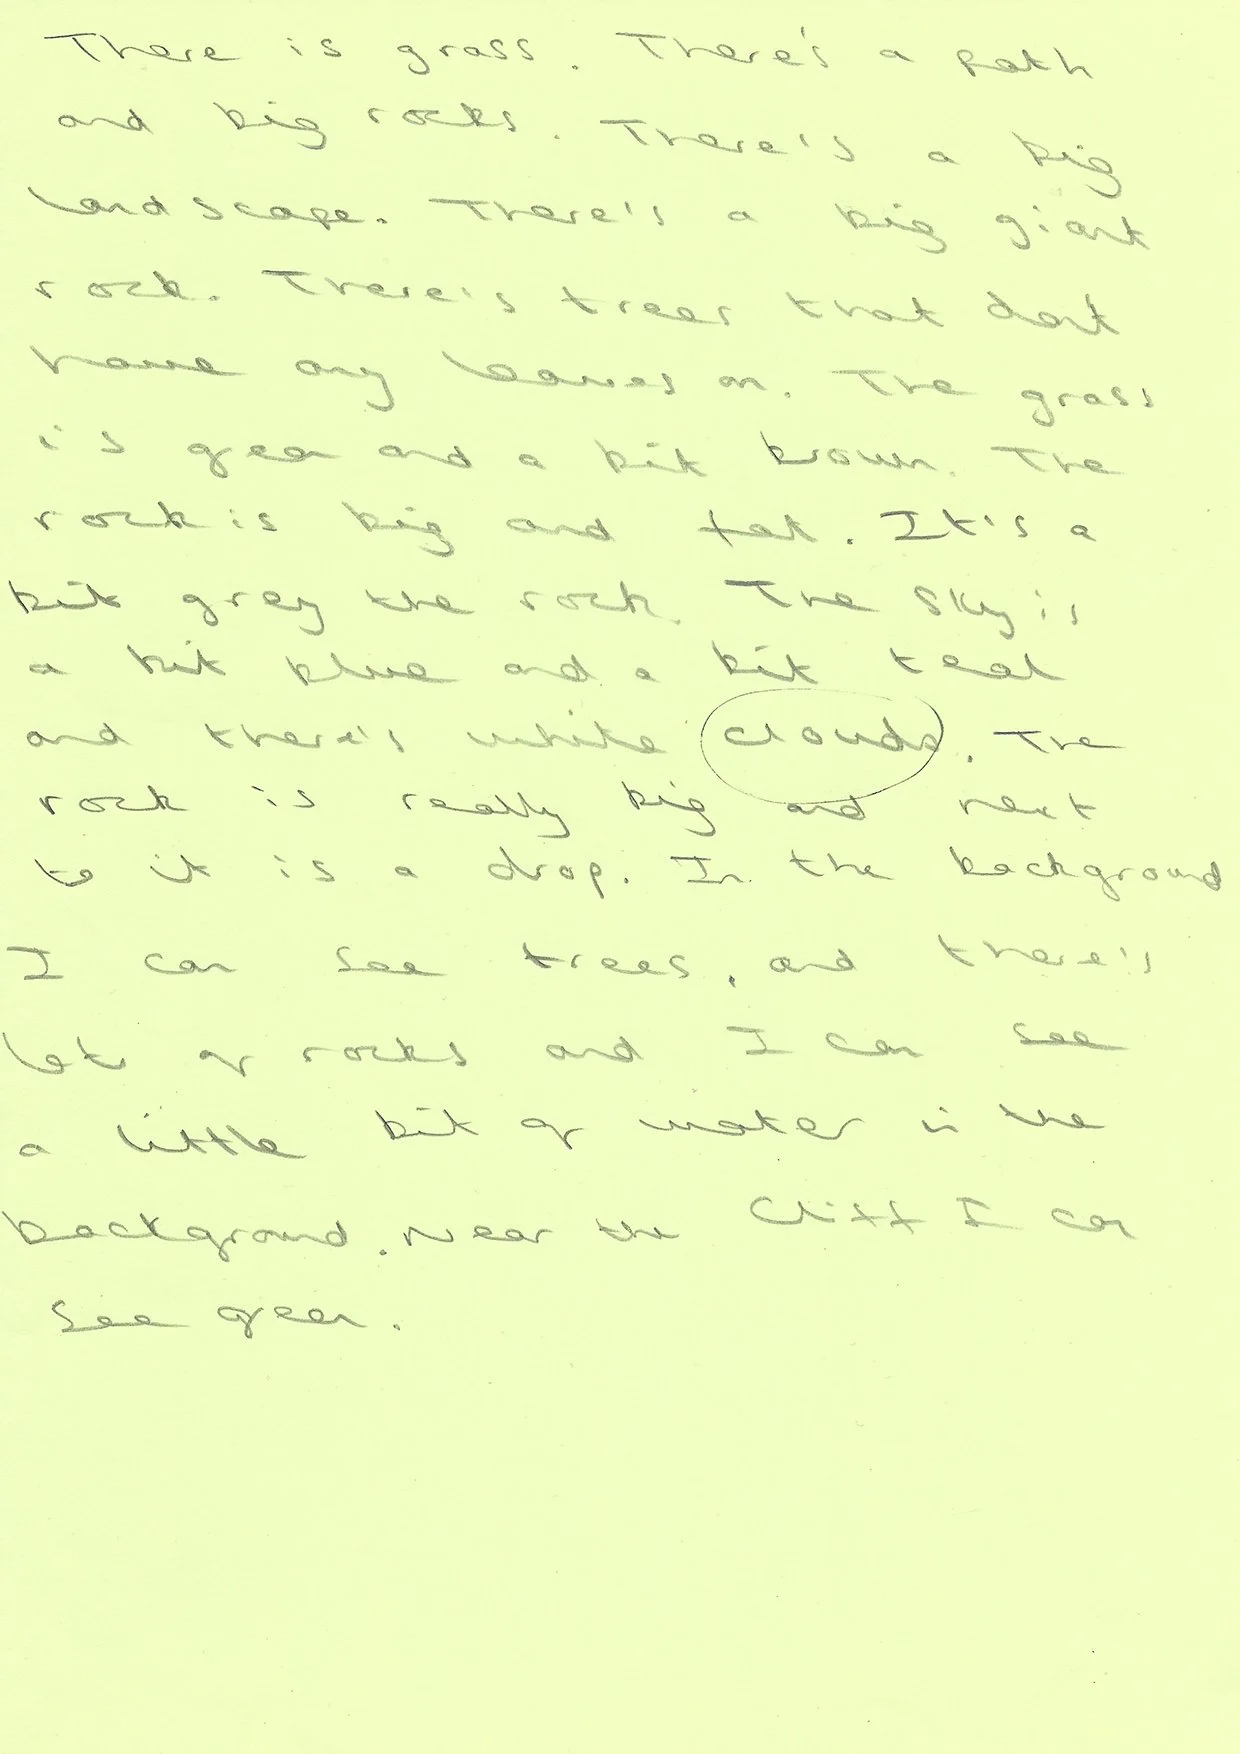 There is grass. There's a path
and big rocks. There's a big
landscape. There's a big giant
rock. There's trees that dont
have any leaves on. The grass
is geen and a bit brown. The
rock is big and fat. It's a
bit grey the rock. The sky is
a bit blue and a bit teal
and there's white clouds. The
rock is really big and next
to it is a drop. In the background
I can see trees, and there's
lots of rocks and I can see
a little bit of water in the
background. Near the Cliff I can
see geen.